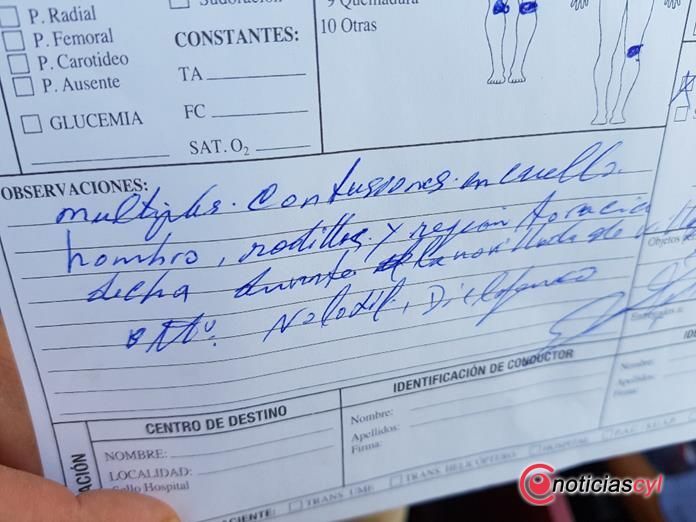 P. Radial
P. Femoral
P. Carotideo
P. Ausente
GLUCEMIA
Sudoración
CONSTANTES:
TA
FC
SAT. O2
9 Quemadura
10 Otras
OBSERVACIONES:
multiples contusiones en cuello
hombro, rodillas y región toracica
decha durante la novillada de
Nolotil, Diclofenaco
CENTRO DE DESTINO
NOMBRE:
LOCALIDAD:
Sello Hospital
IDENTIFICACIÓN DE CONDUCTOR
Nombre:
Apellidos:
Firma:
Nombre:
Apellidos:
Firma:
Objetos
TRANS. UME
TRANS. HELICÓPTERO
HOSPITAL
noticiascyl